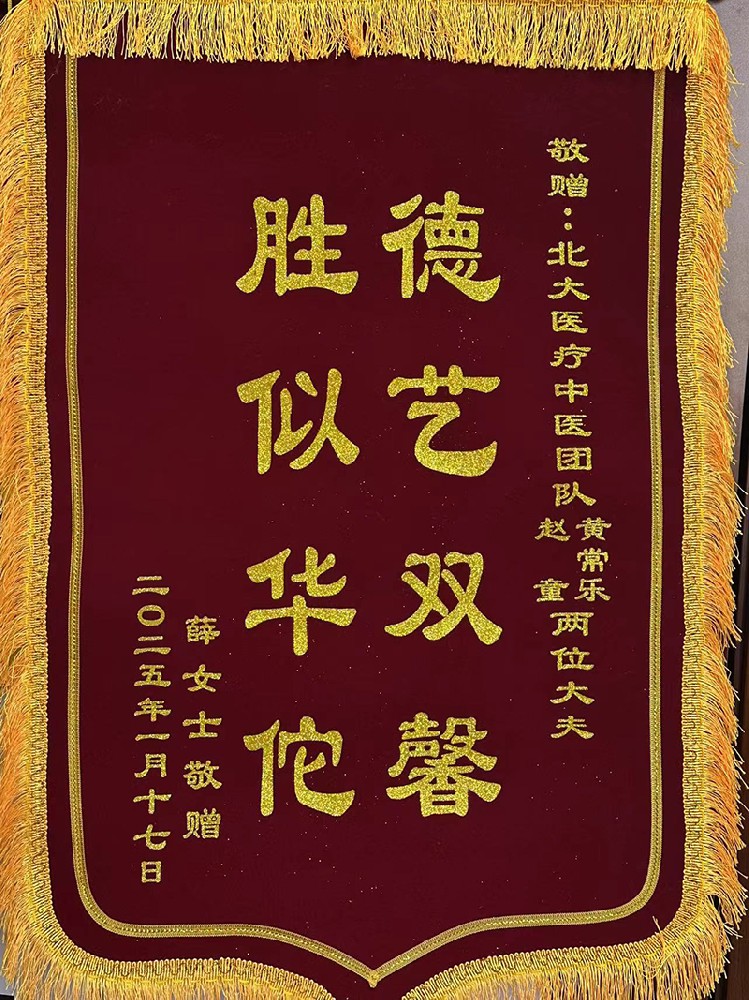 敬赠：北大医疗中医团队黄常乐赵童两位大夫
德艺双馨
胜似华佗
薛女士敬赠
二〇二五年一月十七日